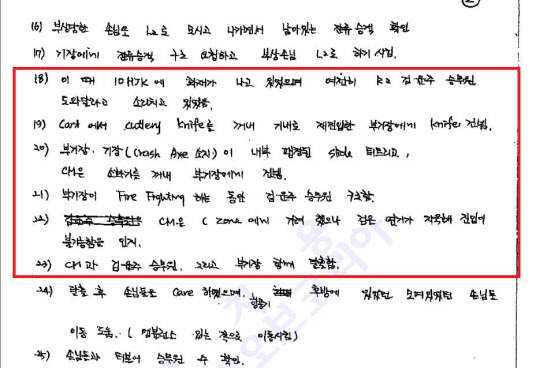 16) 부상당한 손님은 L2로 모시고 나가면서 남아있는 잔류승객 확인
17) 기장에게 잔류승객 구조 요청하고 부상손님 L2로 하기 시킴.
18) 이 때 10HJK에 화재가 나고 있었으며 여전히 R2 김윤주 승무원
도와달라고 소리치고 있었음.
19) Cart에서 cutlery knife를 꺼내 기내로 재진입한 부기장에게 knife 전달.
20) 부기장. 기장(Crash Axe 소지)이 내부 팽창된 slide 터트리고,
CM은 소화기를 꺼내 부기장에게 전달.
21) 부기장이 Fire Fighting 하는 동안 김윤주 승무원 구조함.
22) CM은 C zone에 가려 했으나 검은 연기가 자욱해 진입이
불가능함을 인지.
23) CM과 김윤주 승무원. 그리고 부기장 함께 탈출함.
24) 탈출 후 손님들을 Care 하였으며, 항공기 후방에 있었던 모여있던 손님도
이동 도움. ( 앰뷸런스 있는 쪽으로 이동시킴)
25) 손님들과 더불어 승무원 수 확인.